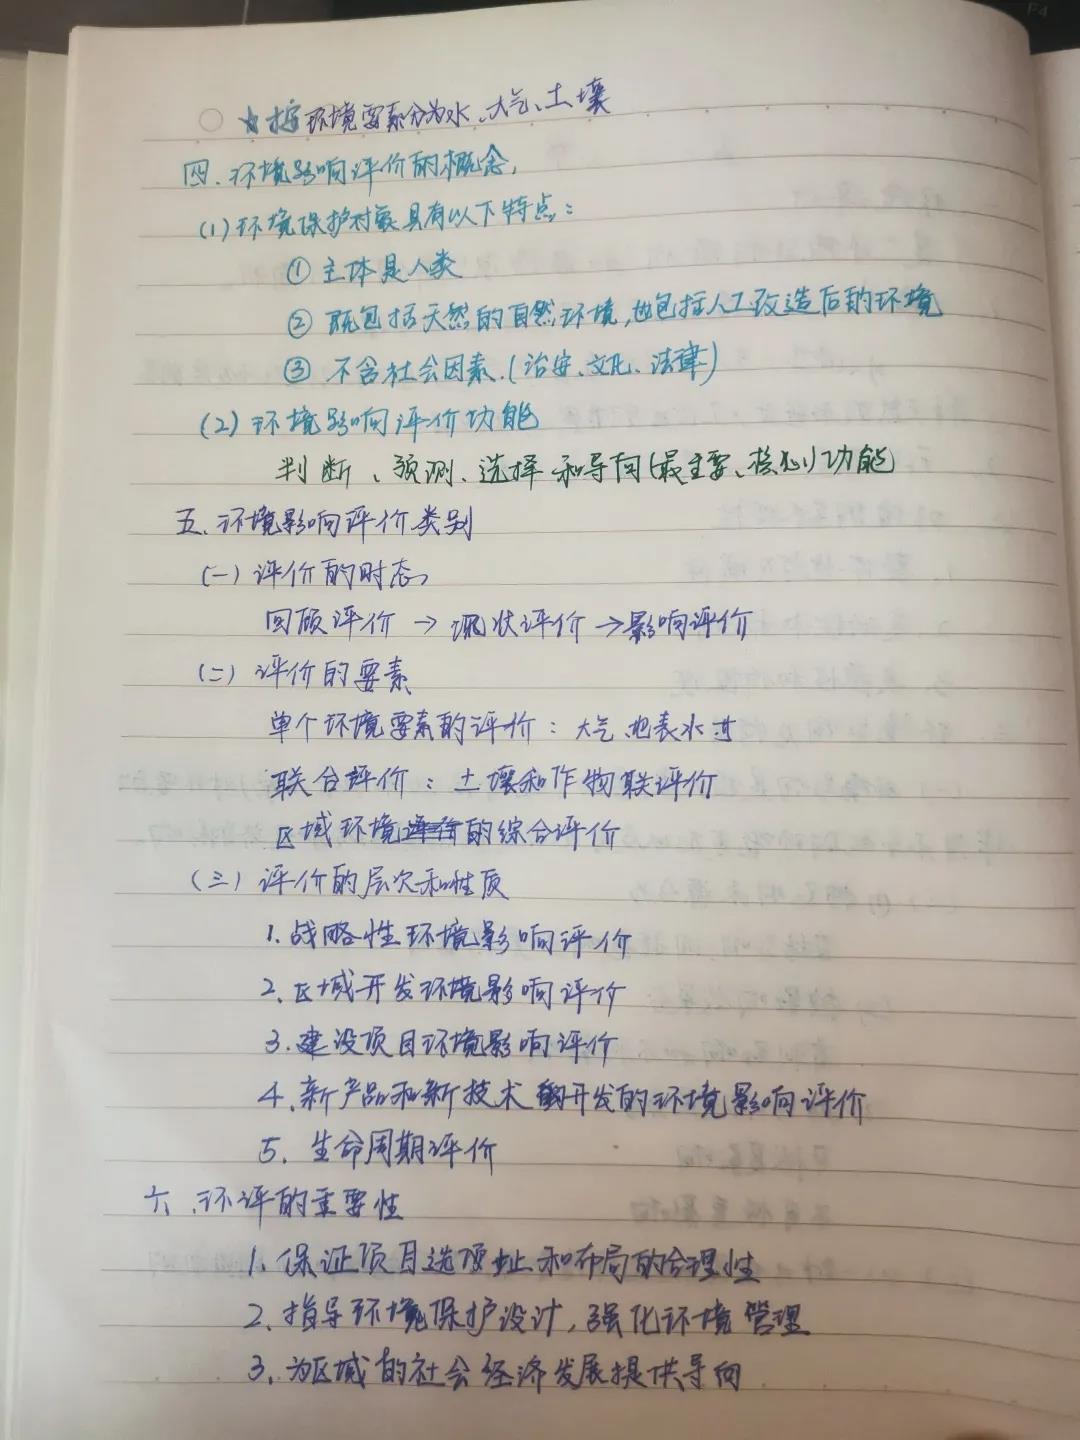 ☆按环境要素分为水、大气、土壤
四、环境影响评价的概念,
(1)环境保护对象具有以下特点:
① 主体是人类
② 既包括天然的自然环境,也包括人工改造后的环境
③ 不含社会因素.(治安、文化、法律)
(2)环境影响评价功能
判断、预测、选择和导向(最主要、核心)功能
五、环境影响评价类别
(一)评价的时态
回顾评价→现状评价→影响评价
(二)评价的要素
单个环境要素的评价:大气、地表水
联合评价:土壤和作物联评价
区域环境的综合评价
(三)评价的层次和性质
1.战略性环境影响评价
2.区域开发环境影响评价
3.建设项目环境影响评价
4.新产品和新技术开发的环境影响评价
5.生命周期评价
六、环评的重要性
1.保证项目选址和布局的合理性
2.指导环境保护设计,强化环境管理
3.为区域的社会经济发展提供导向
F4